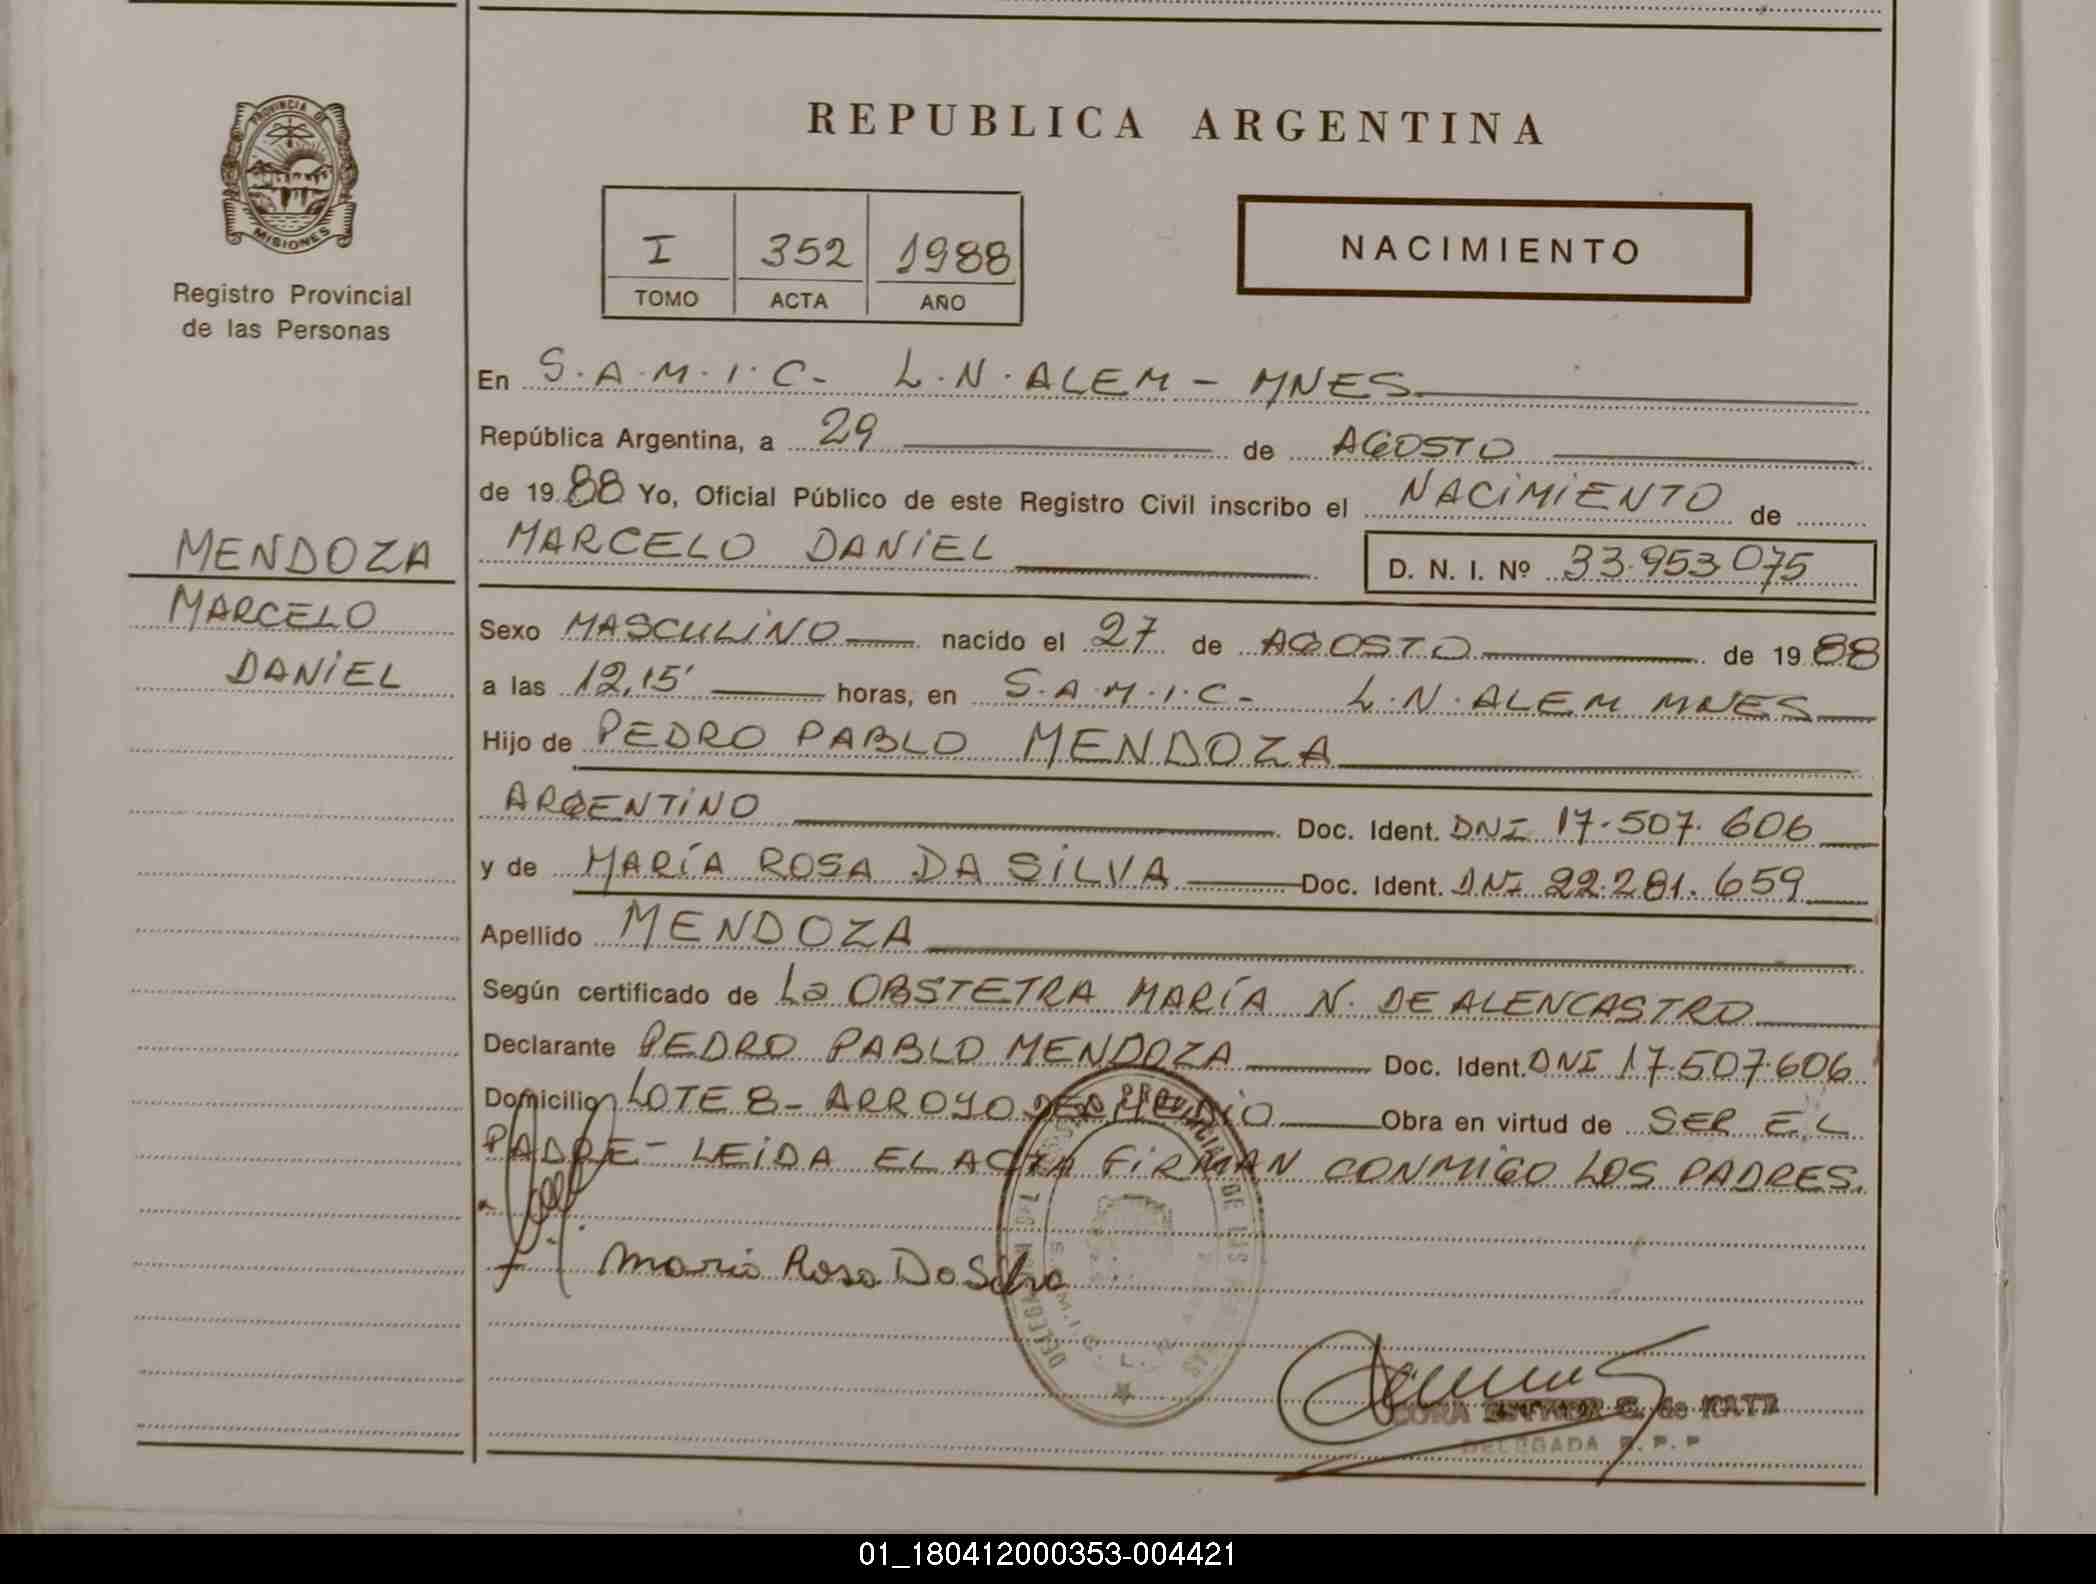 PROVINCIA DE
MISIONES
Registro Provincial
de las Personas
MENDOZA
MARCELO
DANIEL
REPUBLICA ARGENTINA
I 352 1988
TOMO ACTA AÑO
NACIMIENTO
En S.A.M.I.C- L.N.ALEM - MNES
República Argentina, a 29 de AGOSTO
de 1988 Yo, Oficial Público de este Registro Civil inscribo el NACIMIENTO de
MARCELO DANIEL D. N. I. Nº 33.953.075
Sexo MASCULINO nacido el 27 de AGOSTO de 1988
a las 12,15' horas, en S.A.M.I.C- L.N.ALEM MNES
Hijo de PEDRO PABLO MENDOZA
ARGENTINO Doc. Ident. DNI 17.507.606
y de MARÍA ROSA DA SILVA Doc. Ident. DNI 22.281.659
Apellido MENDOZA
Según certificado de La OBSTETRA MARÍA N. DE ALENCASTRO
Declarante PEDRO PABLO MENDOZA Doc. Ident. DNI 17.507.606
Domicilio LOTE 8- ARROYO DEL MEDIO Obra en virtud de SER EL
PADRE- LEIDA EL ACTA FIRMAN CONMIGO LOS PADRES.
Maria Rosa Da Silva
de KATZ
DELEGADA R. P. P
01_180412000353-004421